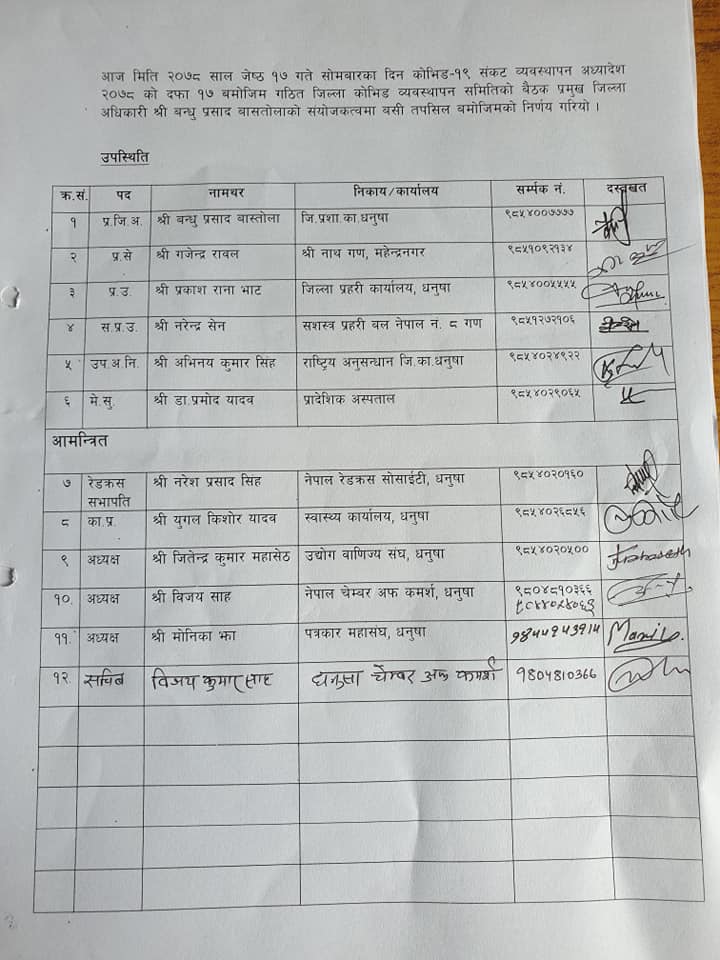 आज मिति २०७८ साल जेष्ठ १७ गते सोमबारका दिन कोभिड-१९ संकट व्यवस्थापन अध्यादेश
२०७८ को दफा १७ बमोजिम गठित जिल्ला कोभिड व्यवस्थापन समितिको बैठक प्रमुख जिल्ला
अधिकारी श्री बन्धु प्रसाद बास्तोलाको संयोजकत्वमा बसी तपसिल बमोजिमको निर्णय गरियो ।
उपस्थिति
क्र.सं. पद नामथर निकाय/कार्यालय सर्म्पक नं. दस्तखत
१ प्र.जि.अ. श्री बन्धु प्रसाद बास्तोला जि.प्रशा.का.धनुषा ९८५४००७७७७
२ प्र.से श्री गजेन्द्र रावल श्री नाथ गण, महेन्द्रनगर ९८५१०९२१३४
३ प्र.उ. श्री प्रकाश राना भाट जिल्ला प्रहरी कार्यालय, धनुषा ९८५४००५५५५
४ स.प्र.उ. श्री नरेन्द्र सेन सशस्त्र प्रहरी बल नेपाल नं. ८ गण ९८५१२७२१०६
५ उप.अ.नि. श्री अभिनय कुमार सिंह राष्ट्रिय अनुसन्धान जि.का.धनुषा ९८५४०२४९२२
६ मे.सु. श्री डा.प्रमोद यादव प्रादेशिक अस्पताल ९८५४०२९०६५
आमन्त्रित
७ रेडक्रस सभापति श्री नरेश प्रसाद सिंह नेपाल रेडक्रस सोसाईटी, धनुषा ९८५४०२०१६०
८ का.प्र. श्री युगल किशोर यादव स्वास्थ्य कार्यालय, धनुषा ९८५४०२६८५६
९ अध्यक्ष श्री जितेन्द्र कुमार महासेठ उद्योग वाणिज्य संघ, धनुषा ९८५४०२०५०० Jmahaseth
१०. अध्यक्ष श्री विजय साह नेपाल चेम्बर अफ कमर्श, धनुषा ९८०४८१०३६६
११. अध्यक्ष श्री मोनिका झा पत्रकार महासंघ, धनुषा
१२. सचिब विजय कुमार साह धनुसा चेम्बर अफ कमर्श 9804810366